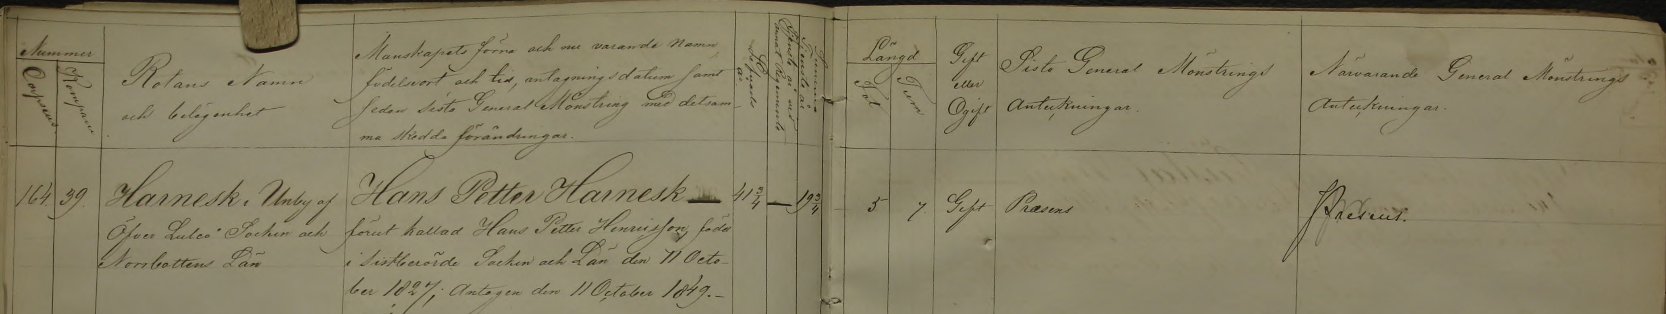 Nummer
Corpsens
Kompani
Rotans Namn
och belägenhet
Manskapets förra och nu varande namn
födelseort och tid, antagningsdatum samt
sedan sista General Mönstring med detsam-
ma skedda förändringar.
Lefnads
år
Tjenste år vid
annat Regemente
Summa
Tjenste år
Längd
Fot
Tum
Gift
eller
Ogift
Sista General Mönstrings
Anteckningar.
Närvarande General Mönstrings
Anteckningar.
164 39. Harnesk i Unby af
Öfver Luleå Socken och
Norrbottens Län
Hans Petter Harnesk
förut kallad Hans Petter Henricsson, född
i sistberörde Socken och Län den 11 Octo-
ber 1827; Antagen den 11 October 1849.-
41 3/4 — 19 3/4
5 7 Gift Præsens
Present.